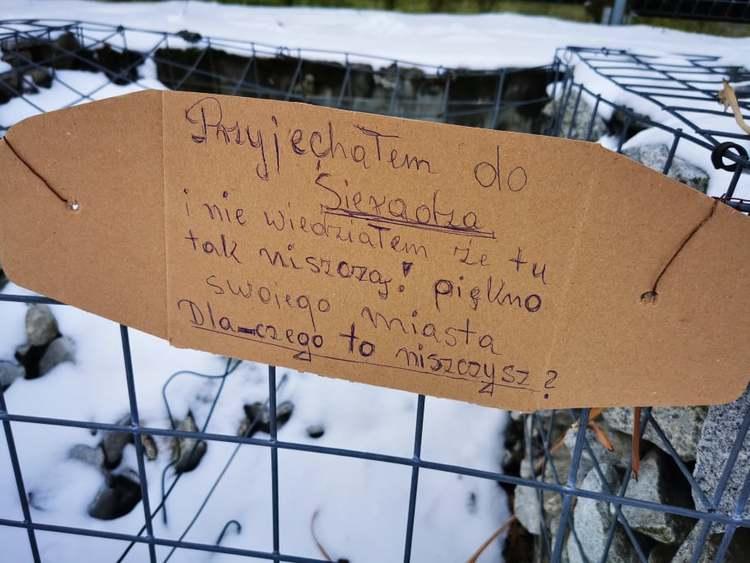 Przyjechałem do
Sieradza
i nie wiedziałem że tu
tak niszczą! piękno
swojego miasta
Dlaczego to niszczysz?